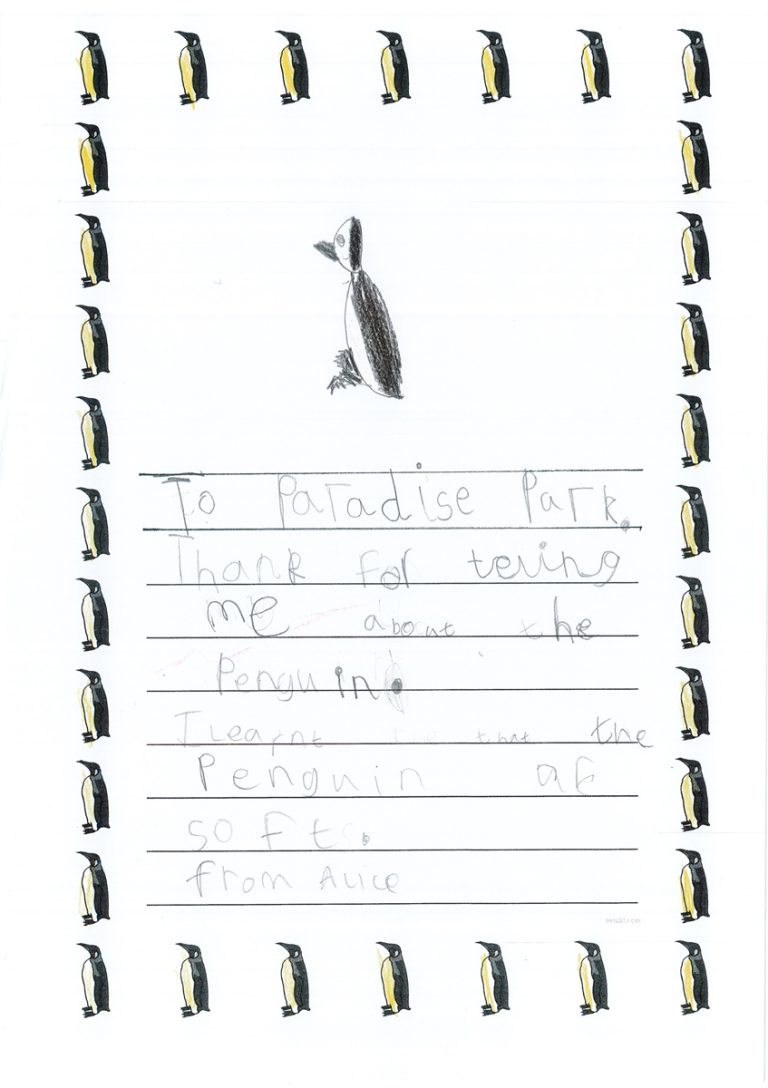 To Paradise Park.
Thank for tering
me about the
Penguin.
I Learnt the that the
Penguin ar
soft.
from Alice